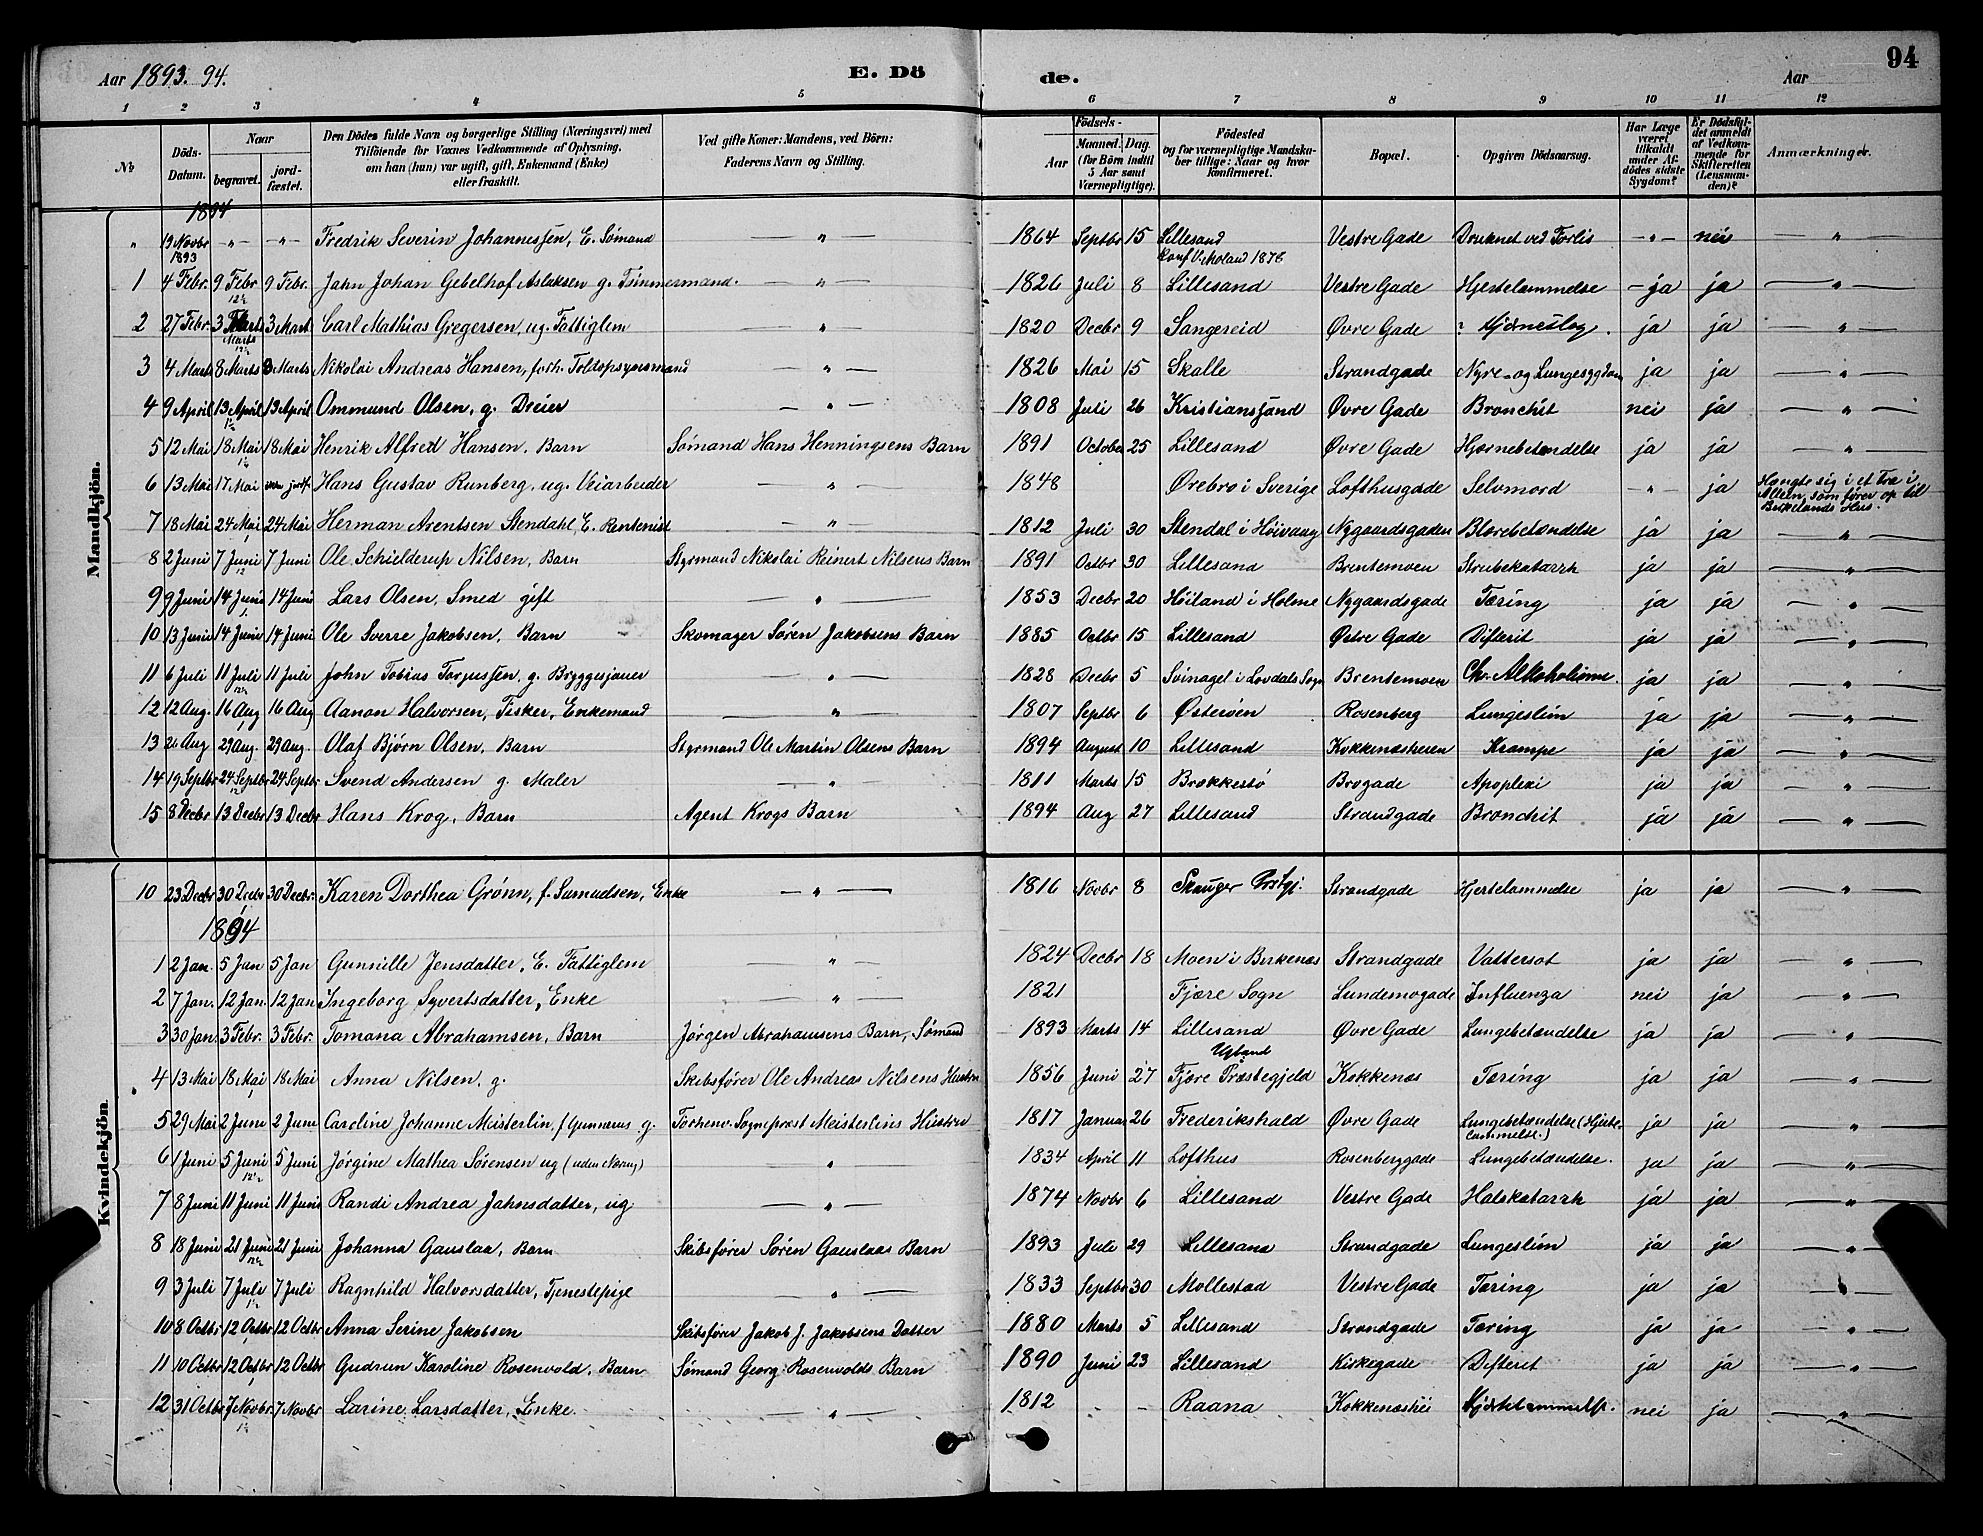 Aar 1893. 94. E. Dö de. Aar 94
1 2 3 4 5 6 7 8 9 10 11 12
№ Döds-Datum. Naar begravet. jordfæstet. Den Dödes fulde Navn og borgerlige Stilling (Næringsvei) med Tilföiende for Voxnes Vedkommende af Oplysning, om han (hun) var ugift, gift, Enkemand (Enke) eller fraskilt. Ved gifte Koner: Mandens, ved Börn: Faderens Navn og Stilling. Födsels- Aar Maaned. Dag. (for Börn indtil 5 Aar samt Værnepligtige). Födested og for værnepligtige Mandskaber tillige: Naar og hvor konfirmeret. Bopæl. Opgiven Dödsaarsag. Har Læge været tilkaldt under Afdödes sidste Sygdom? Er Dödsfaldet anmeldt af Vedkommende for Skifteretten (Lensmanden)? Anmærkninger.
Mandkjön.
1894
" 19 Novbr 1893 -"- -"- Fredrik Severin Johannessen, E. Sømand — " — 1864 Septbr 15 Lillesand Konf V. Moland 1878 Vestre Gade Druknet ved Forlis -"- nei — " —
1 4 Febr. 9 Febr 12½ 9 Febr. Jahn Johan Gebelhof Aslaksen g. Tømmermand. — " — 1826 Juli 8 Lillesand Vestre Gade Hjertelammelse - ja ja — " —
2 27 Febr. 3 Marts 12½ 3 Mart Carl Mathias Gregersen, ug. Fattiglem — " — 1820 Decbr 9 Sangereid Øvre Gade ja ja — " —
3 4 Mart 8 Marts 8 Marts Nikolai Andreas Hansen, forh. Toldopsynsmand — " — 1826 Mai 15 Skalle Strandgade Nyre- og Lungesygdom ja ja — " —
4 9 April 13 April 1½ 13 April Ommund Olsen, g. Dreier — " — 1808 Juli 26 Kristianssand Øvre Gade Bronchit nei ja — " —
5 12 Mai 18 Mai 1½ 18 Mai Henrik Alfred Hansen. Barn Sømand Hans Henningsens Barn 1891 October 25 Lillesand Øvre Gade Hjernebetændelse ja ja — " —
6 13 Mai 17 Mai jordf. Hans Gustav Runberg, ug. Veiarbeider — " — 1848 Ørebro i Sverige Lofthusgade Selvmord -"- ja Hængte sig i et Træ i Alleen, som fører op til Birkelands Hus.
7 18 Mai 24 Mai 1 24 Mai Herman Arentsen Stendahl, E. Rentenist — " — 1812 Juli 30 Stendal i Høivaag Nygaardsgaden Blærebetændelse ja ja — " —
8 2 Juni 7 Juni 12 7 Juni Ole Schielderup Nilsen, Barn Styrmand Nikolai Reinert Nilsens Barn 1891 Octbr 30 Lillesand Brentemoen Strubekatarrh ja ja — " —
9 9 Juni 14 Juni 1 14 Juni Lars Olsen, Smed gift — " — 1853 Decbr 20 Høiland i Holme Nygaardsgade Tæring ja ja — " —
10 13 Juni 14 Juni 14 Juni Ole Sverre Jakobsen, Barn Skomager Sören Jakobsens Barn 1885 Octbr 15 Lillesand Østre Gade Difterit ja ja — " —
11 6 Juli 11 Juli 12½ 11 Juli John Tobias Torjussen, g. Bryggesjauer — " — 1828 Decbr 5 Brentemoen Chr. Alkoholisme. ja ja — " —
12 12 Aug. 16 Aug 1 16 Aug Aanon Halvorsen, Fisker, Enkemand — " — 1807 Septbr 6 Østerøen Rosenberg Lungeslim ja ja — " —
13 26 Aug 29 Aug. 29 Aug. Olaf Bjørn Olsen, Barn Styrmand Ole Martin Olsens Barn 1894 August 10 Lillesand Kokkenæsheien Krampe ja ja — " —
14 19 Septbr 24 Septbr 12 24 Septbr Svend Andersen g. Maler — " — 1811 Marts 15 Brækkestø Brogade Apoplexi ja ja — " —
15 8 Decbr 13 Decbr 13 Decbr Hans Krog, Barn Agent Krogs Barn 1894 Aug 27 Lillesand Strandgade Bronchit ja ja — " —
Kvindekjön.
10 23 Decbr 30 Decbr 1 30 Decbr. Karen Dorthea Grønn, f. Samuelsen, Enke — " — 1816 Novbr 8 Skauger Prstgj. Strandgade Hjertelammelse ja ja — " —
1894
1 2 Jan. 5 Jan 5 Jan Gunnille Jensdatter, E. Fattiglem — " — 1824 Decbr 18 Moen i Birkenes Strandgade Vattersot ja ja — " —
2 7 Jan. 12 Jan. 12 Jan Ingeborg Syvertsdatter, Enke — " — 1821 Fjære Sogn Lundemogade Influenza nei ja — " —
3 30 Jan. 3 Febr. 3 Febr. Tomana Abrahamsen, Barn Jörgen Abrahamsens Barn, Sømand 1893 Marts 14 Lillesand Øvre Gade Lungebetændelse ja ja — " —
4 13 Mai 18 Mai 1 18 Mai Anna Nilsen, g. Skibsfører Ole Andreas Nilsens Hustru 1856 Juni 27 Fjære Præstegjeld Kokkenæs Tæring ja ja — " —
5 29 Mai 2 Juni 1 2 Juni Caroline Johanne Meisterlin, f Gunnerus g. Forhenv. Sogneprest Meisterlins Hustru 1817 Januar 26 Frederikshald Øvre Gade Lungebetændelse (Hjertelammelse.) ja ja — " —
6 1 Juni 5 Juni 12½ 5 Juni Jörgine Mathea Sørensen ug (uden Næring) — " — 1834 April 11 Lofthus Rosenberggade Lungebetændelse. ja ja — " —
7 8 Juni 11 Juni 11 Juni Randi Andrea Jahnsdatter, ug — " — 1874 Novbr 6 Lillesand Vestre Gade Halskatarrh ja ja — " —
8 18 Juni 21 Juni 12½ 21 Juni Johanna Gauslaa, Barn Skibsfører Sören Gauslaas Barn 1893 Juli 29 Lillesand Strandgade Lungeslim ja ja — " —
9 3 Juli 7 Juli 1½ 7 Juli Ragnhild Halvorsdatter, Tjenestepige — " — 1833 Septbr 30 Mollestad Vestre Gade Tæring ja ja — " —
10 8 Octbr 12 Octbr 12 Octbr Anna Serine Jakobsen Skibsfører Jakob J. Jakobsens Datter 1880 Marts 5 Lillesand Strandgade Tæring ja ja — " —
11 10 Octbr 12 Octbr 12 Octbr Gudrun Karoline Rosenvold, Barn Sømand Georg Rosenvolds Barn 1890 Juni 23 Lillesand Kirkegade Difterit ja ja — " —
12 31 Octbr 7 Novbr. 1½ 7 Novbr Larine Larsdatter, Enke. — " — 1812 - - Raana Kokkenæshei Hjertelammelse. nei ja — " —